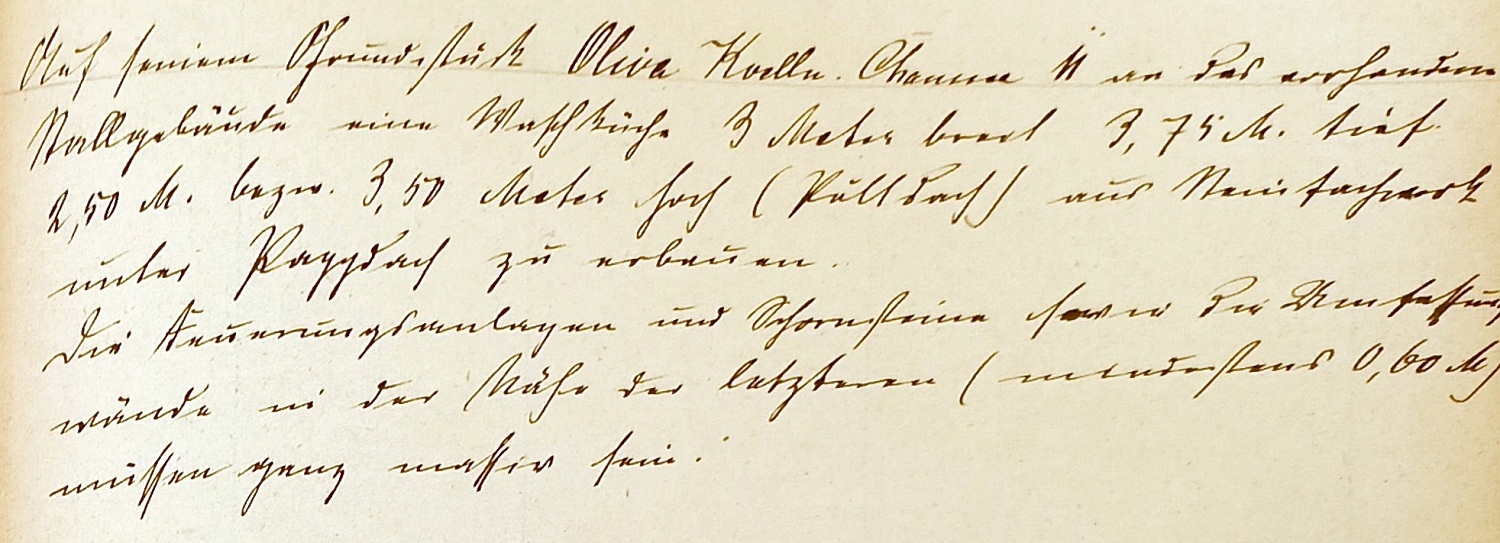 Auf seinem Grundstück Oliva Koelln. Chaussee 11 an das vorhandene
Stallgebäude eine Waschküche 3 Meter breit 3,75 M. tief
2,50 M. bezw. 3,50 Meter hoch (Pultdach) aus Steinfachwerk
unter Pappdach zu erbauen.
Die Feuerungsanlagen und Schornsteine sowie die Umfassungs
wände in der Nähe der letzteren (mindestens 0,60 M)
müssen ganz massiv sein.